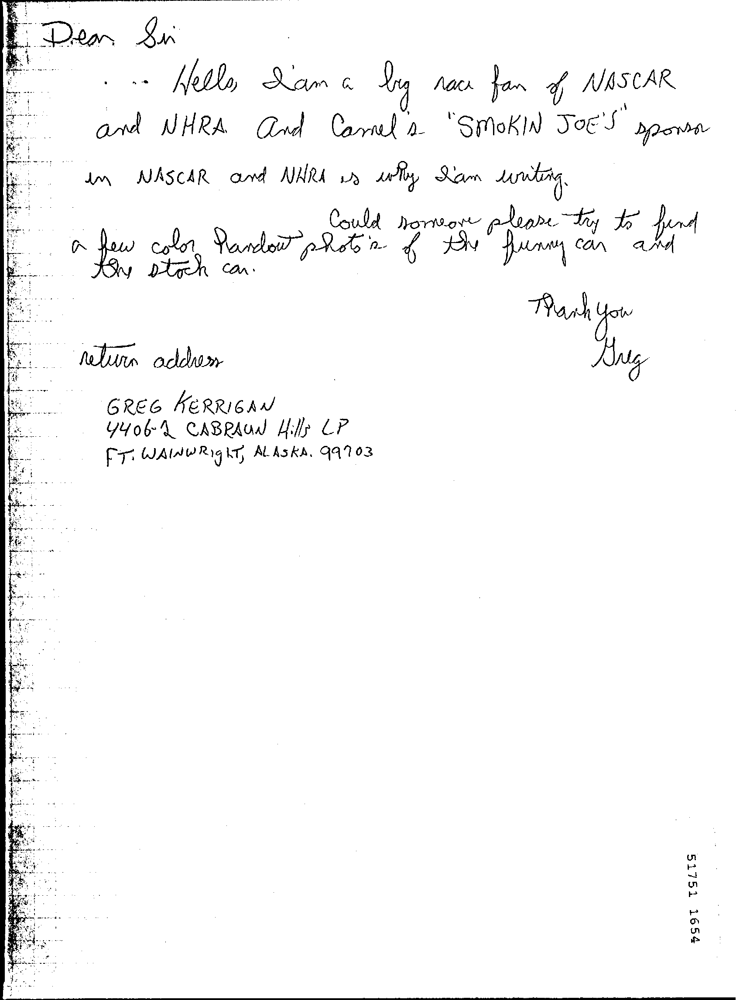 Dear Sir
Hello, I'am a big race fan of NASCAR
and NHRA. And Camel's "SMOKIN JOE'S" sponsor
in NASCAR and NHRA is why I'am writing.
Could someone please try to find
a few color handout photo's of the funny car and
the stock car.
Thank you
Greg
return address
GREG KERRIGAN
4406-2 CABRAUN Hills LP
FT. WAINWRIGHT, ALASKA. 99703
51751 1654